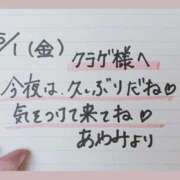 5/1(金)
クラゲ様へ
今夜は、久しぶりだね♡
気をつけて来てね♡
あゆみより